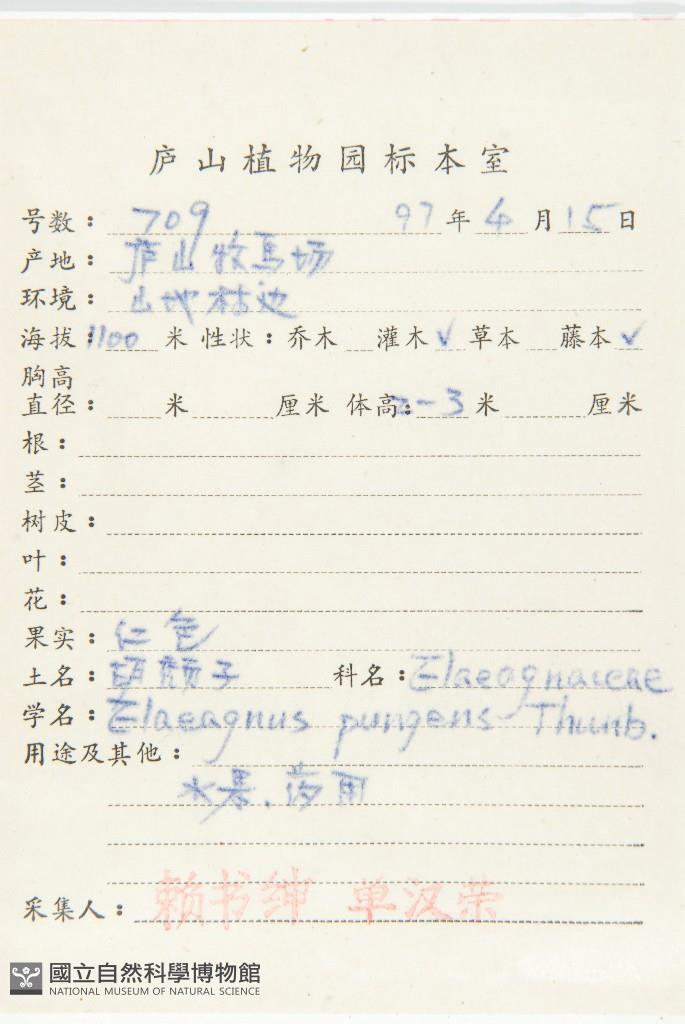 庐山植物园标本室
号数：709 97年4月15日
产地：庐山牧马场
环境：山地林边
海拔：1100米 性状：乔木 灌木✓ 草本 藤本✓
胸高
直径： 米 厘米 体高：2-3米 厘米
根：
茎：
树皮：
叶：
花：
果实：仁色
土名：胡颓子 科名：Elaeagnaceae
学名：Elaeagnus pungens Thunb.
用途及其他：
水果、药用
采集人：赖书绅 单汉荣
國立自然科學博物館
NATIONAL MUSEUM OF NATURAL SCIENCE